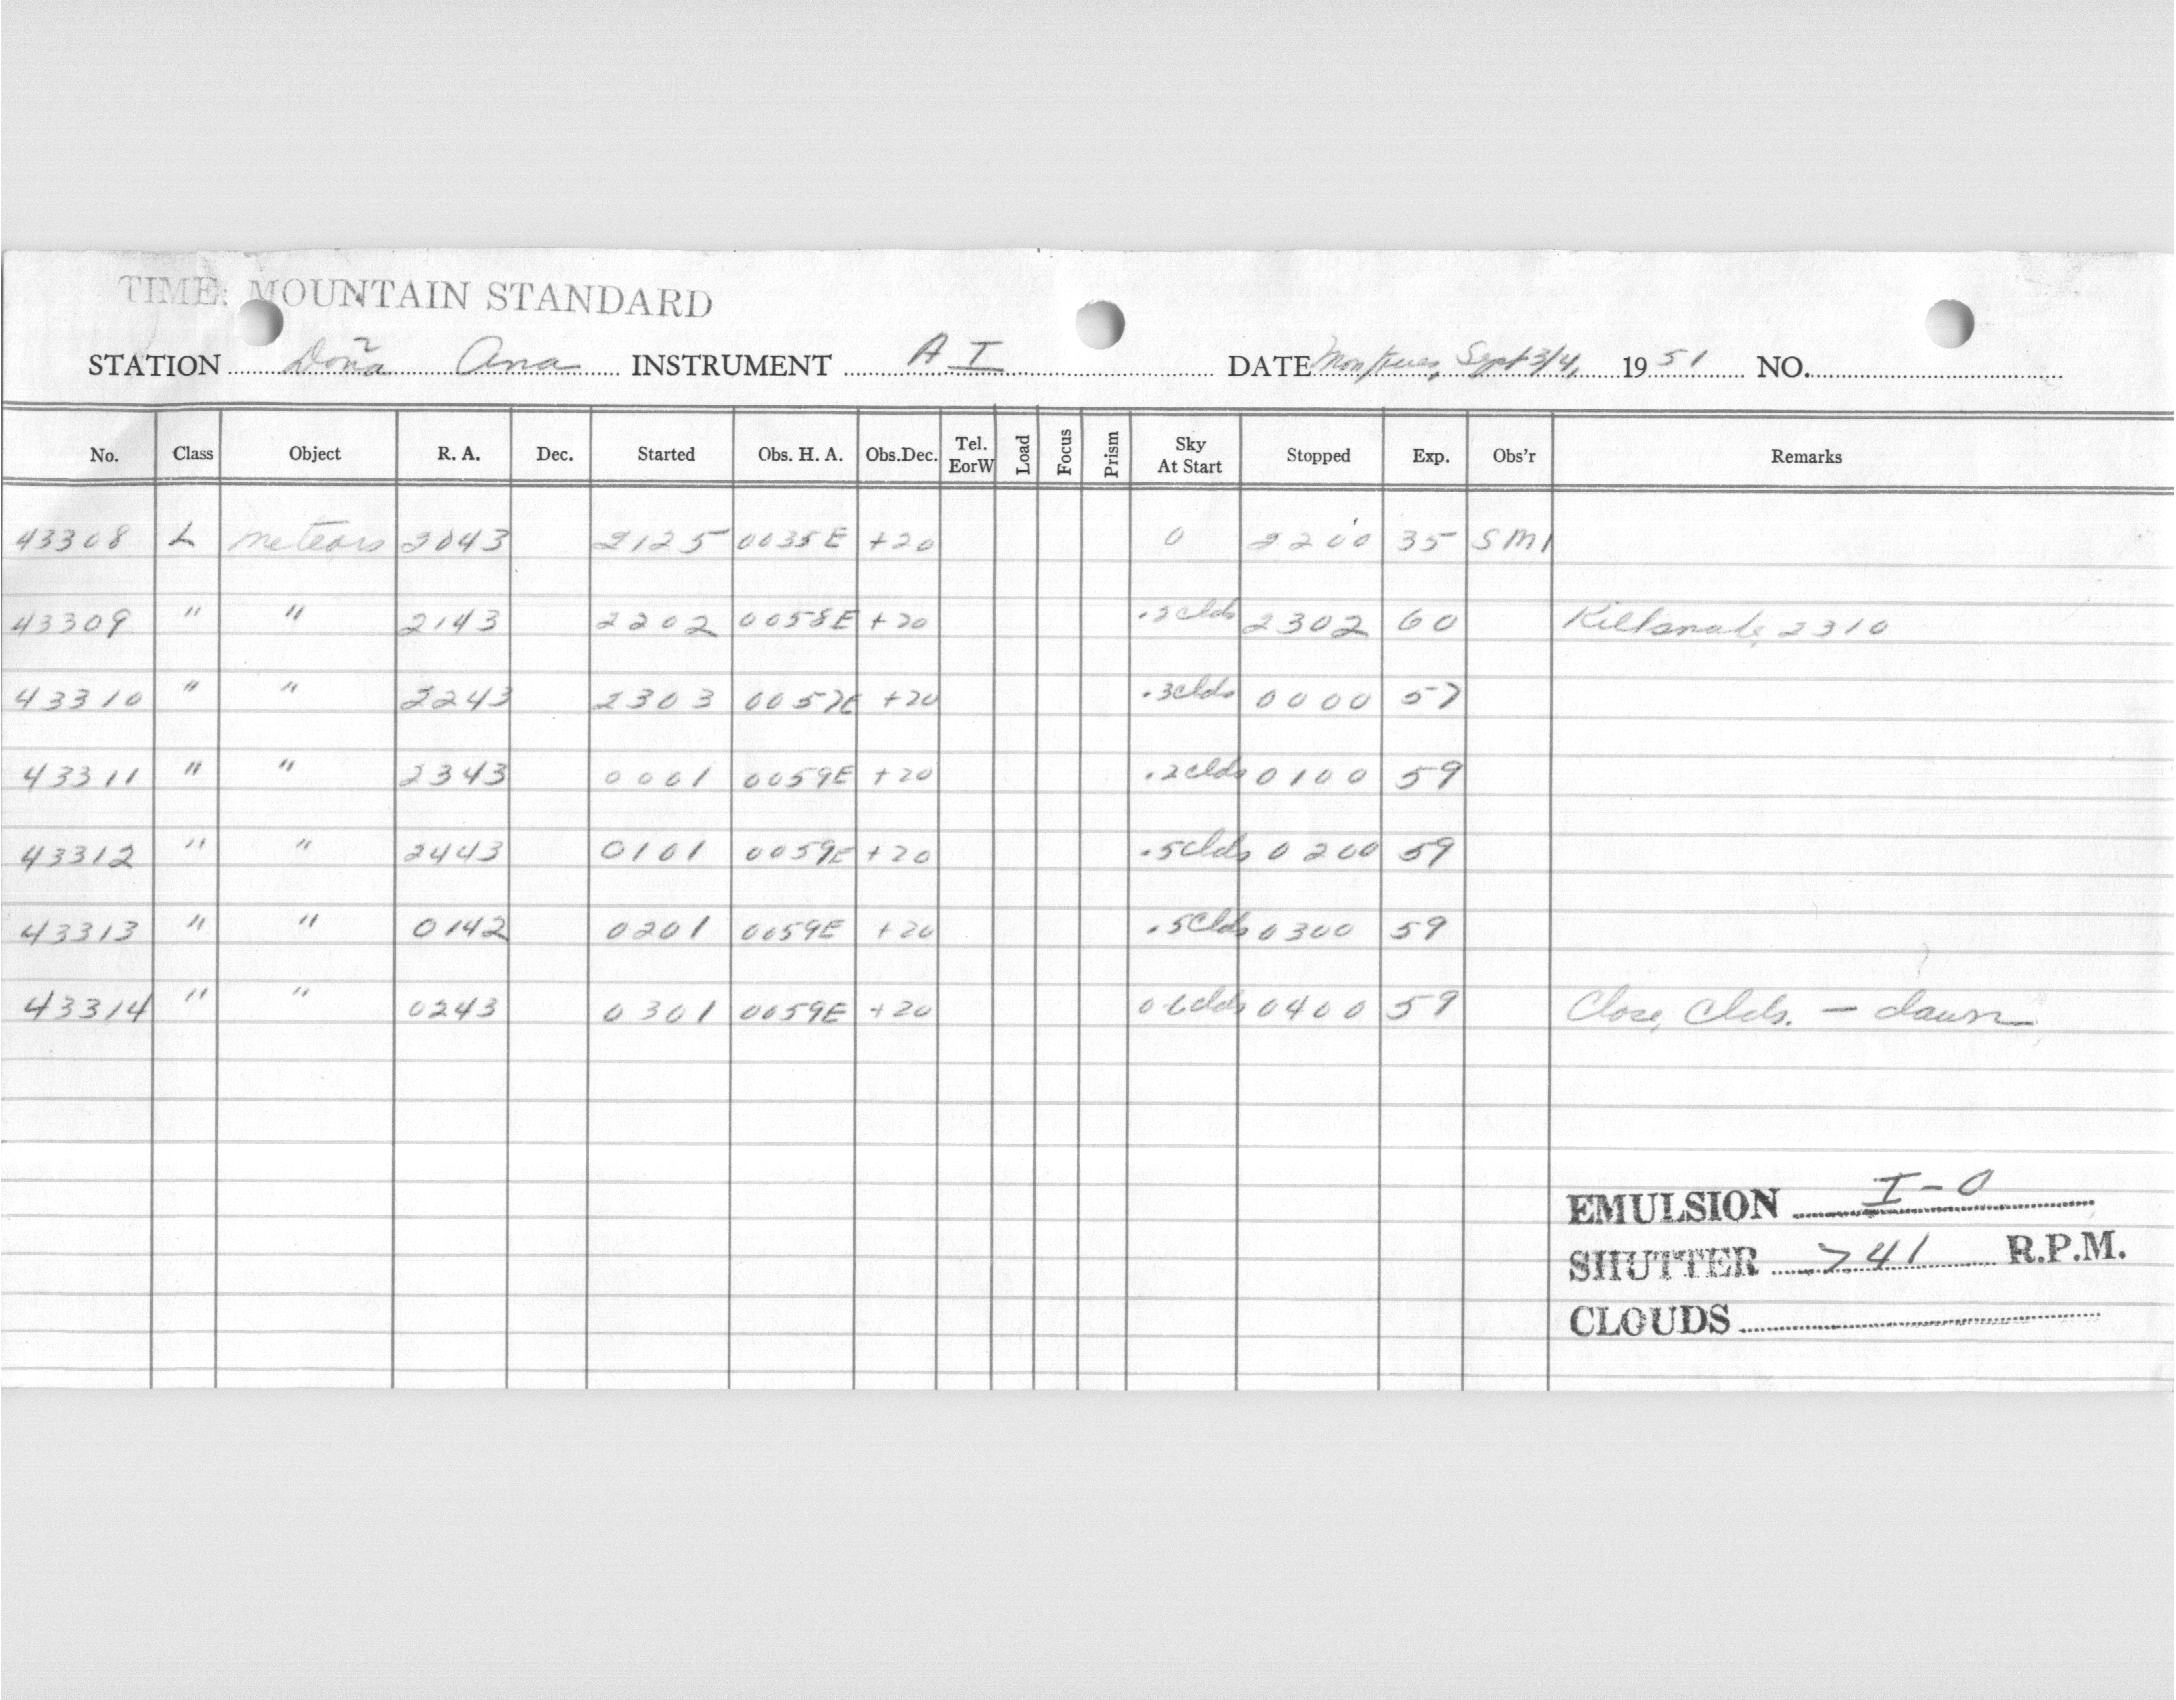 TIME: MOUNTAIN STANDARD
STATION Doña Ana INSTRUMENT A I DATE Mon/Tues, Sept 3/4, 1951 NO.
No. Class Object R. A. Dec. Started Obs. H. A. Obs.Dec. Tel. EorW Load Focus Prism Sky At Start Stopped Exp. Obs'r Remarks
43308 L meteors 2043 2125 0035E +20 0 2200 35 SM1
43309 " " 2143 2202 0058E +20 .2clds 2302 60 2310
43310 " " 2243 2303 0057E +20 .3clds 0000 57
43311 " " 2343 0001 0059E +20 .2clds 0100 59
43312 " " 2443 0101 0059E +20 .5clds 0200 59
43313 " " 0142 0201 0059E +20 .5Clds 0300 59
43314 " " 0243 0301 0059E +20 0400 59 Close, Clds. — dawn
EMULSION I-0
SHUTTER >41 R.P.M.
CLOUDS